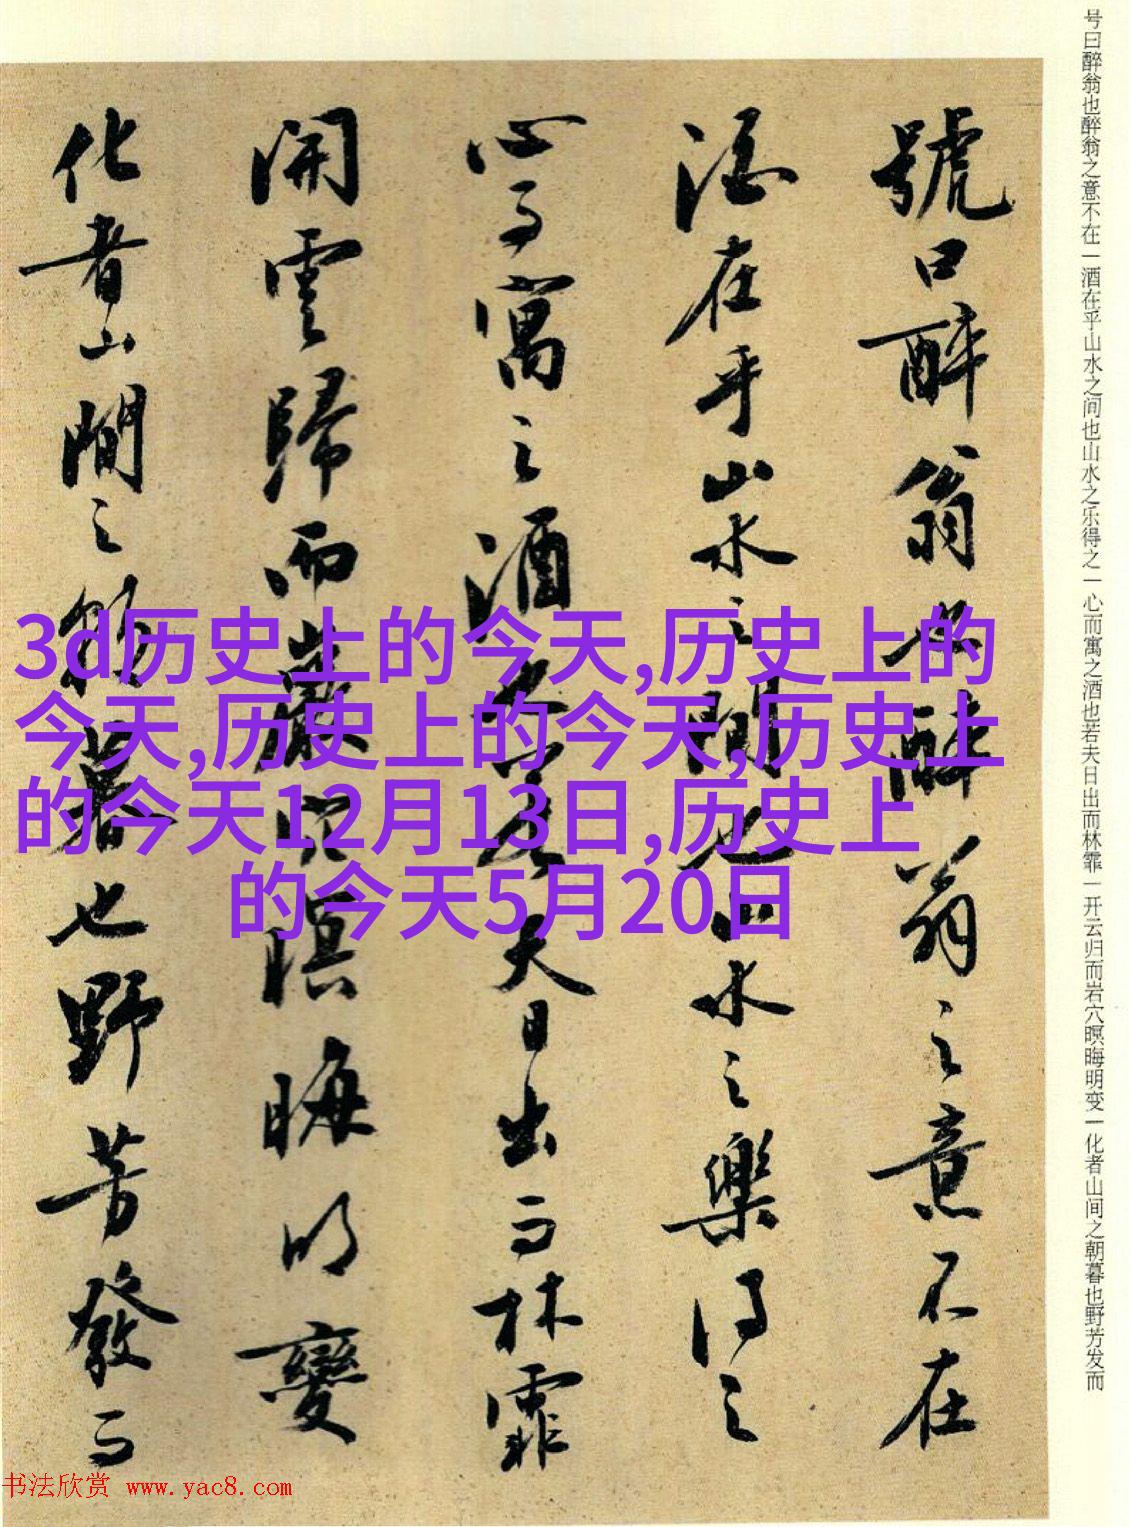 号曰醉翁也醉翁之意不在一酒在乎山水之间也山水之乐得之一心而寓之酒也若夫日出而林霏一开云归而岩穴暝晦明变一化者山间之朝暮也野芳发而
號曰醉翁也醉翁之意不在
酒在乎山水之間也山水之樂得之
心而寓之酒也若夫日出而林霏
開雲歸而巖穴暝晦明變
化者山間之朝暮也野芳發而
3d历史上的今天,历史上的
今天,历史上的今天,历史上
的今天12月13日,历史上
的今天5月20日
书法欣赏 www.yac8.com